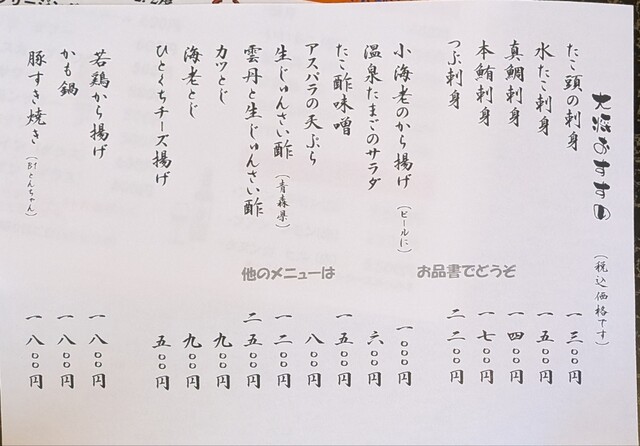 おすすめ (税込価格です)
たこ頭の刺身 一三〇〇円
水たこ刺身 一五〇〇円
真鯛刺身 一四〇〇円
本鮪刺身 一七〇〇円
つぶ刺身 二二〇〇円
小海老のから揚げ (ビールに) 一〇〇〇円
温泉たまごのサラダ 六〇〇円
たこ酢味噌 一五〇〇円
アスパラの天ぷら 八〇〇円
生じゅんさい酢 (青森県) 一二〇〇円
雲丹と生じゅんさい酢 二五〇〇円
カツとじ 九〇〇円
海老とじ 九〇〇円
ひとくちチーズ揚げ 五〇〇円
若鶏から揚げ 一八〇〇円
かも鍋 一八〇〇円
豚すき焼き (Byとんちゃん) 一八〇〇円
他のメニューは お品書でどうぞ